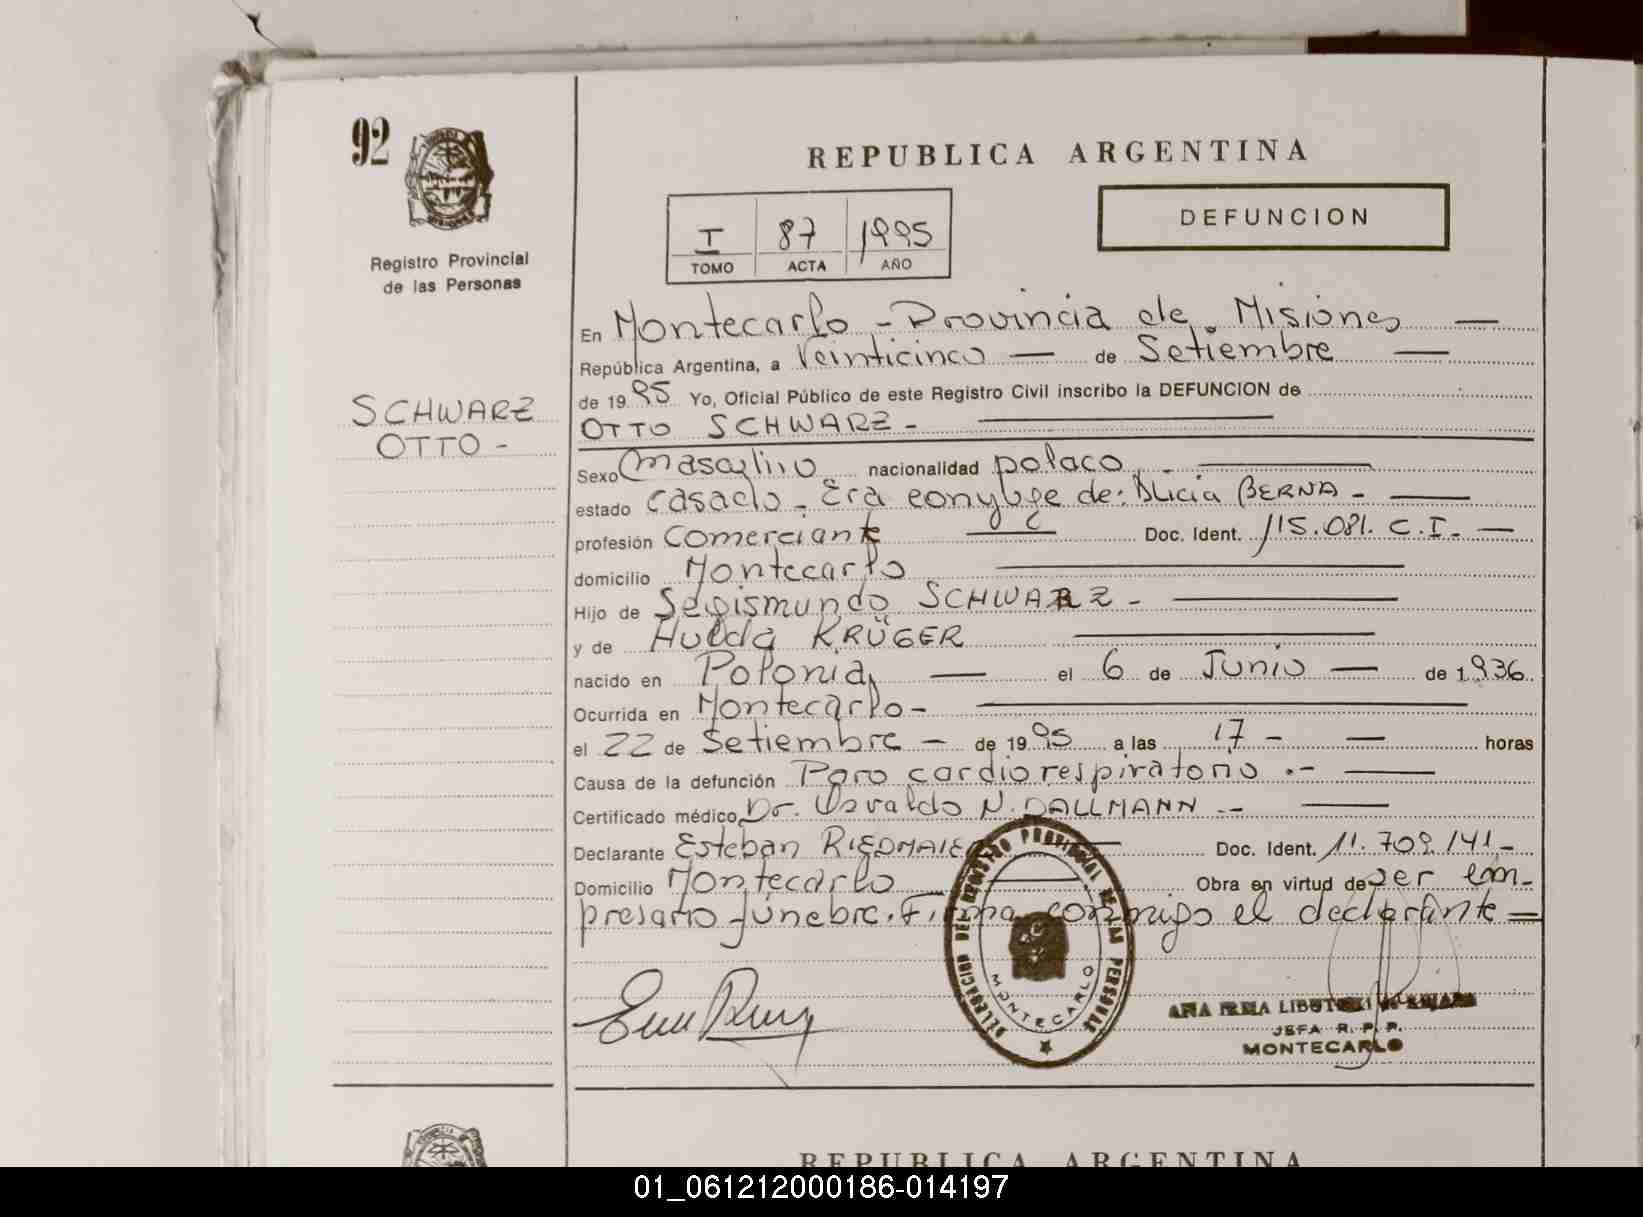 92
REPUBLICA ARGENTINA
DEFUNCION
I 87 1995
TOMO ACTA AÑO
Registro Provincial
de las Personas
SCHWARZ
OTTO -
En Montecarlo - Provincia de Misiones —
República Argentina, a Veinticinco — de Setiembre —
de 1995 Yo, Oficial Público de este Registro Civil inscribo la DEFUNCION de
OTTO SCHWARZ - —
Sexo Masculino nacionalidad polaco. - —
estado casado. Era conyuge de: Alicia BERNA - —
profesión Comerciante — Doc. Ident. 115.081. C.I. —
domicilio Montecarlo —
Hijo de Segismundo SCHWARZ - —
y de Hulda KRÜGER —
nacido en Polonia, — el 6 de Junio — de 1936
Ocurrida en Montecarlo - —
el 22 de Setiembre — de 1995 a las 17 - — horas
Causa de la defunción Paro cardiorespiratorio .- —
Certificado médico Dr. Osvaldo N. DALLMANN -- —
Declarante Esteban RIEDMAIER — Doc. Ident. 11.709.141 -
Domicilio Montecarlo — Obra en virtud de ser em-
presario fúnebre. Firma conmigo el declarante —
DELEGACION DEL REGISTRO PROVINCIAL DE LAS PERSONAS
MONTECARLO
ANA IRMA
JEFA R. P. P.
MONTECARLO
REPUBLICA ARGENTINA
01_061212000186-014197